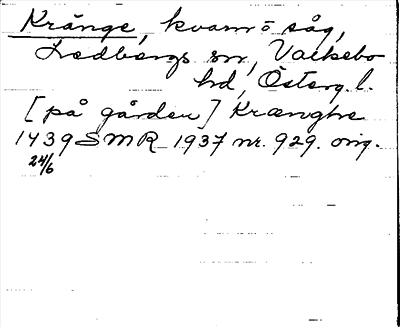 Krånge, kvarn o såg,
Ledbergs sn, Valkebo
hd, Österg. l.
[på gården] Krænghe
1439 SMR 1937 nr. 929. orig.
24/6